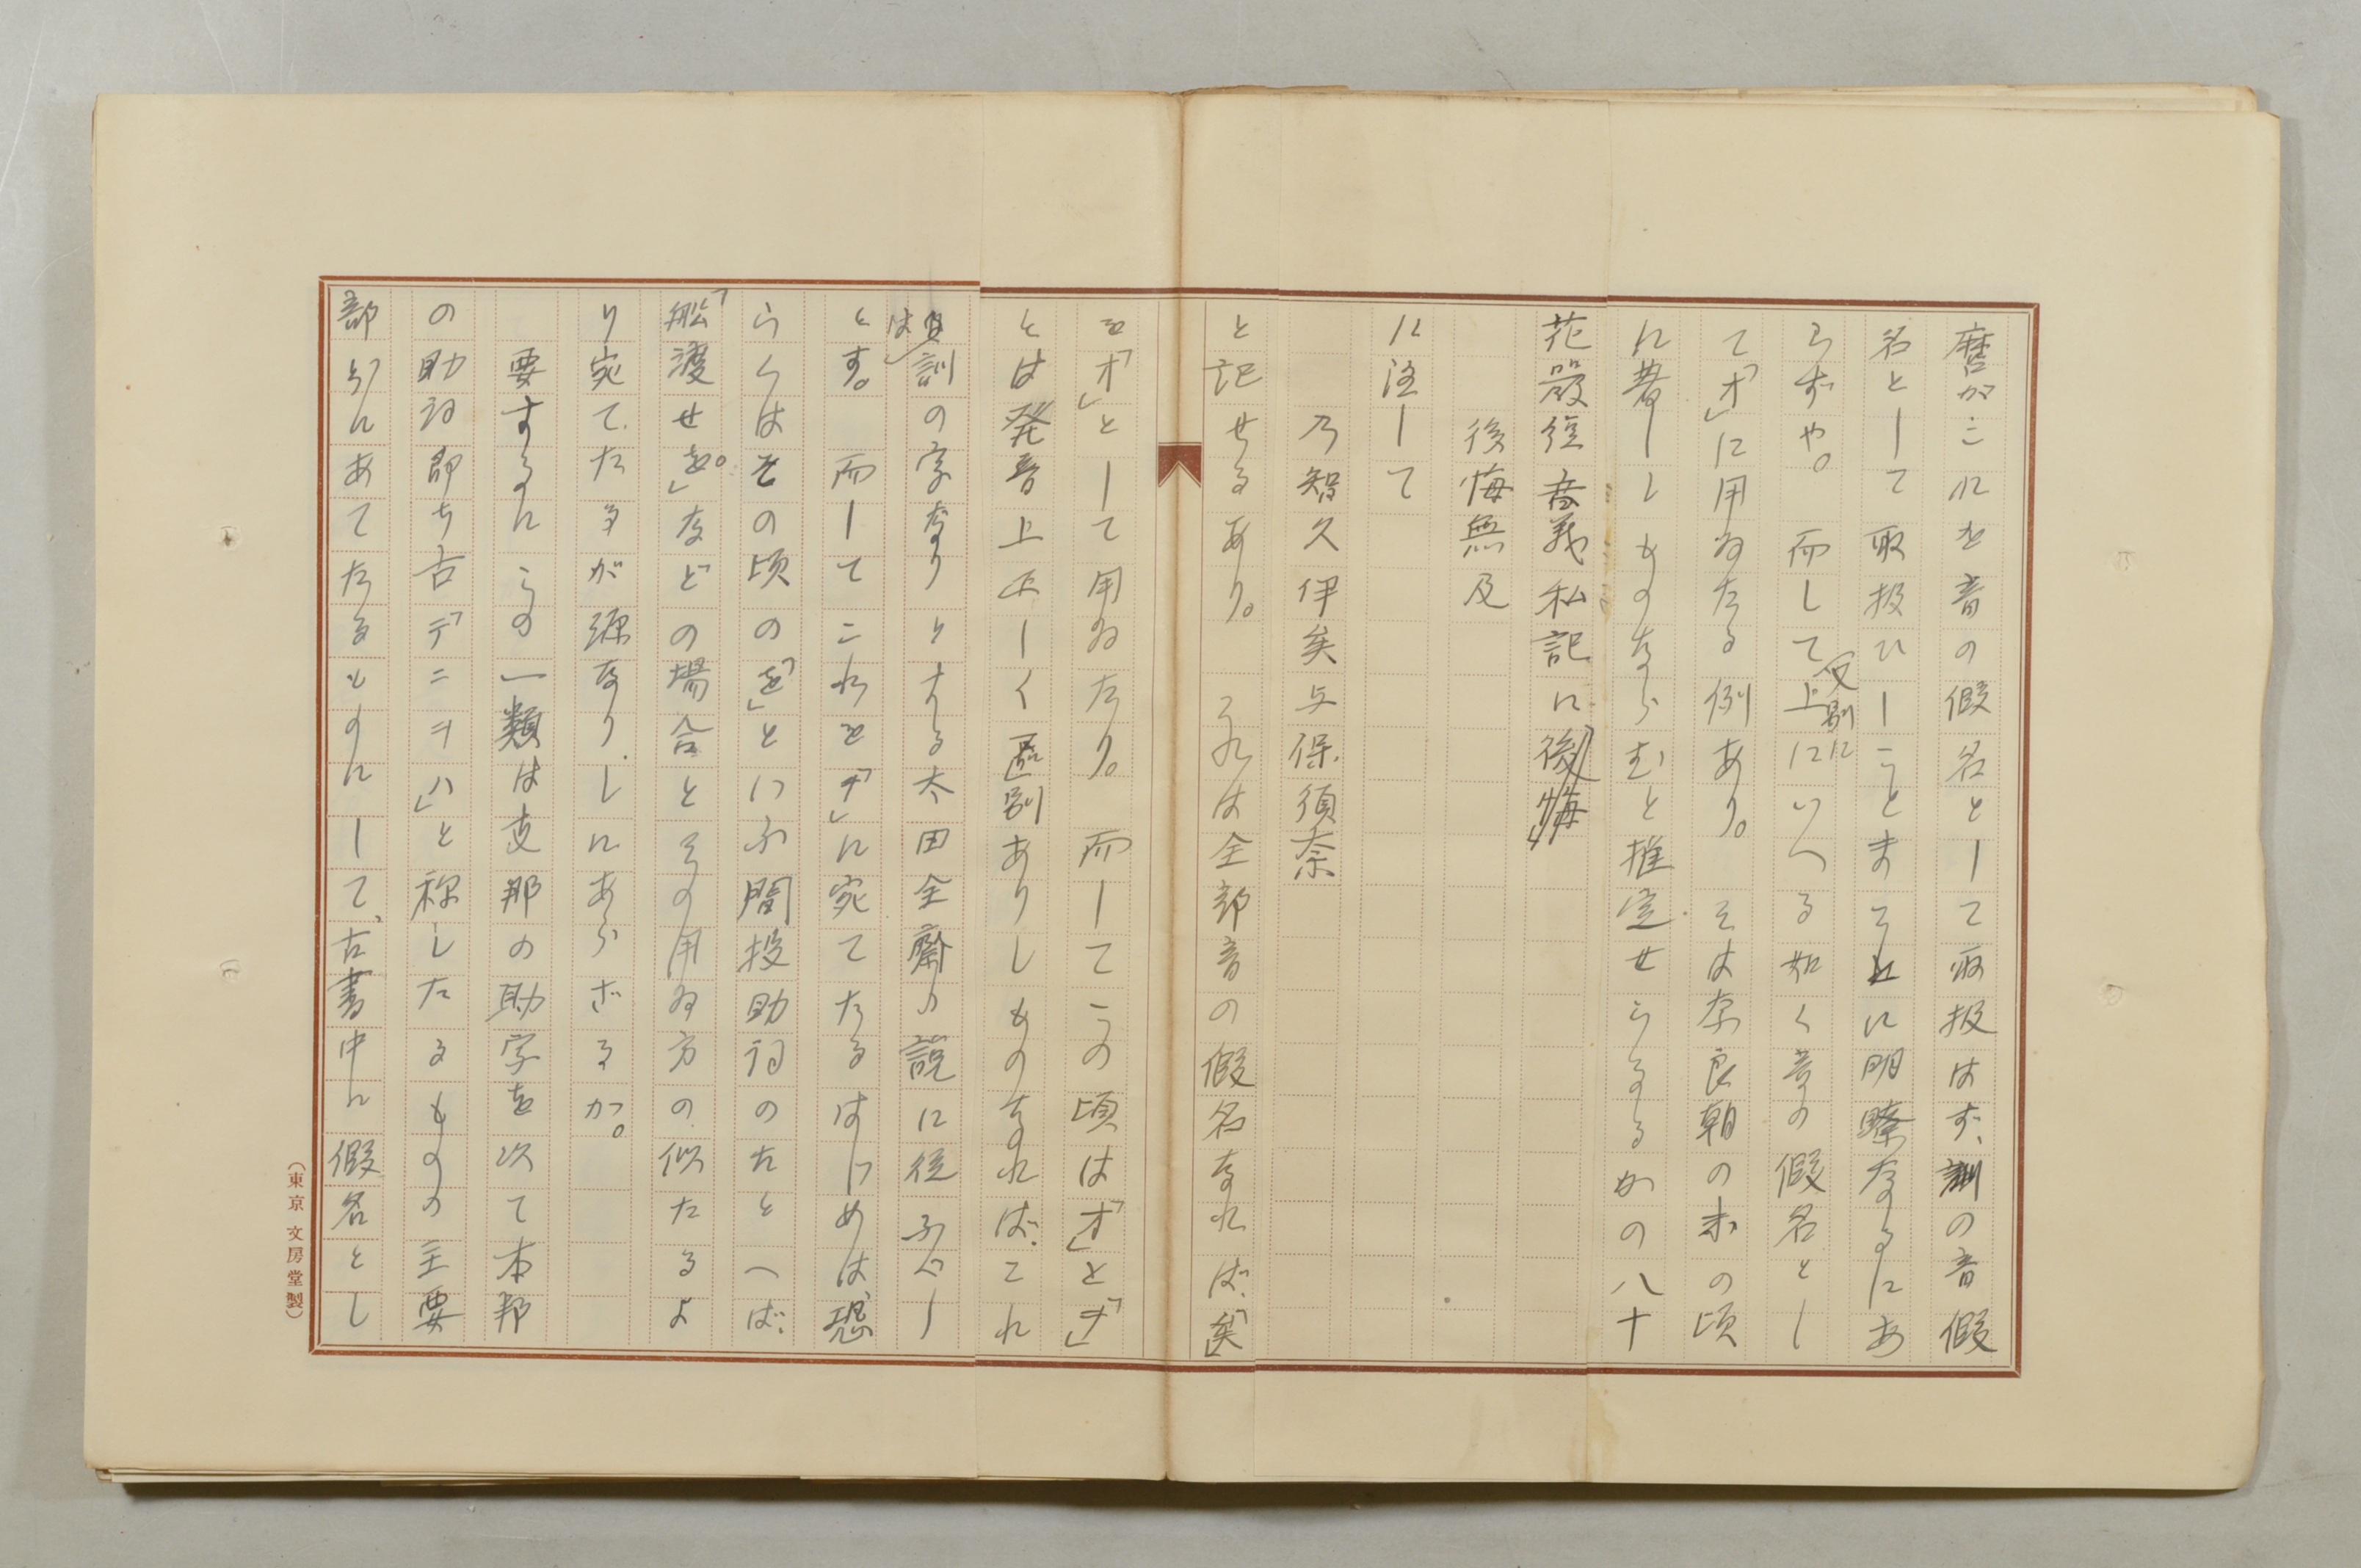 麿がこれを音の假名として取扱はず、訓の音假
名として取扱ひしことまことに明瞭なるにあ
らずや。而して又別に上にいへる如く音の假名とし
て「オ」に用ゐたる例あり。そは奈良朝の末の頃
に著ししものならむと推定せらるるかの八十
花嚴經音義私記に「後悔」
後悔無及
に注して
乃智久伊矣与保須奈
と記せるあり。これは全部音の假名なれば、「矣」
を「オ」として用ゐたり。而してこの頃は「オ」と「ヲ」
とは発音上正しく區別ありしものなれば、これ
は訓の字なりとする太田全齋の説に從ふべし
とす。而してこれを「ヲ」に宛てたるはじめは、恐
らくはその頃の「を」といふ間投助詞のたとへば、
「船渡せを。」などの場合とその用ゐ方の似たるよ
り宛てたるが源なりしにあらざるか。
要するにこの一類は支那の助字を次て本邦
の助詞即ち古「テニヲハ」と称したるものの主要
部分にあてたるものにして、古書中に假名とし
(東京 文房堂製)